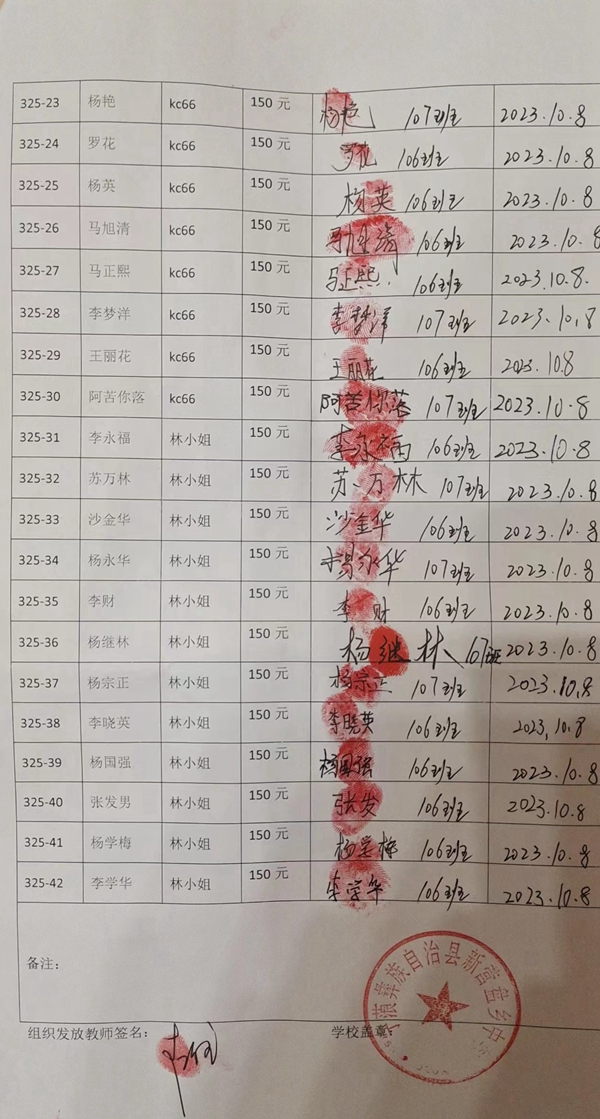 325-23 杨艳 kc66 150 元 杨艳 107班 2023.10.8
325-24 罗花 kc66 150 元 罗花 106班 2023.10.8
325-25 杨英 kc66 150 元 杨英 106班 2023.10.8
325-26 马旭清 kc66 150 元 马旭清 106班 2023.10.8
325-27 马正熙 kc66 150 元 马正熙 106班 2023.10.8.
325-28 李梦洋 kc66 150 元 李梦洋 107班 2023.10.8
325-29 王丽花 kc66 150 元 王丽花 106班 2023.10.8
325-30 阿苦你落 kc66 150 元 阿苦你落 107班 2023.10.8
325-31 李永福 林小姐 150 元 李永福 106班 2023.10.8
325-32 苏万林 林小姐 150 元 苏万林 107班 2023.10.8
325-33 沙金华 林小姐 150 元 沙金华 106班 2023.10.8
325-34 杨永华 林小姐 150 元 杨永华 107班 2023.10.8
325-35 李财 林小姐 150 元 李财 106班 2023.10.8
325-36 杨继林 林小姐 150 元 杨继林 107班 2023.10.8
325-37 杨宗正 林小姐 150 元 杨宗正 107班 2023.10.8
325-38 李晓英 林小姐 150 元 李晓英 106班 2023.10.8
325-39 杨国强 林小姐 150 元 杨国强 106班 2023.10.8
325-40 张发男 林小姐 150 元 张发 106班 2023.10.8
325-41 杨学梅 林小姐 150 元 杨学梅 106班 2023.10.8
325-42 李学华 林小姐 150 元 李学华 106班 2023.10.8
备注：
组织发放教师签名： 学校盖章：
蒗彝族自治县新营盘乡中